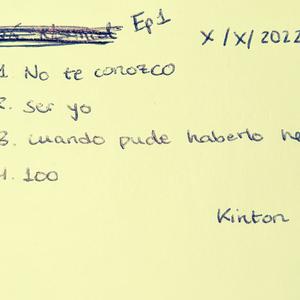 Ep1
X/X/2022
1. No te conozco
2. Ser yo
3. cuando pude haberlo he
4. 100
Kinton